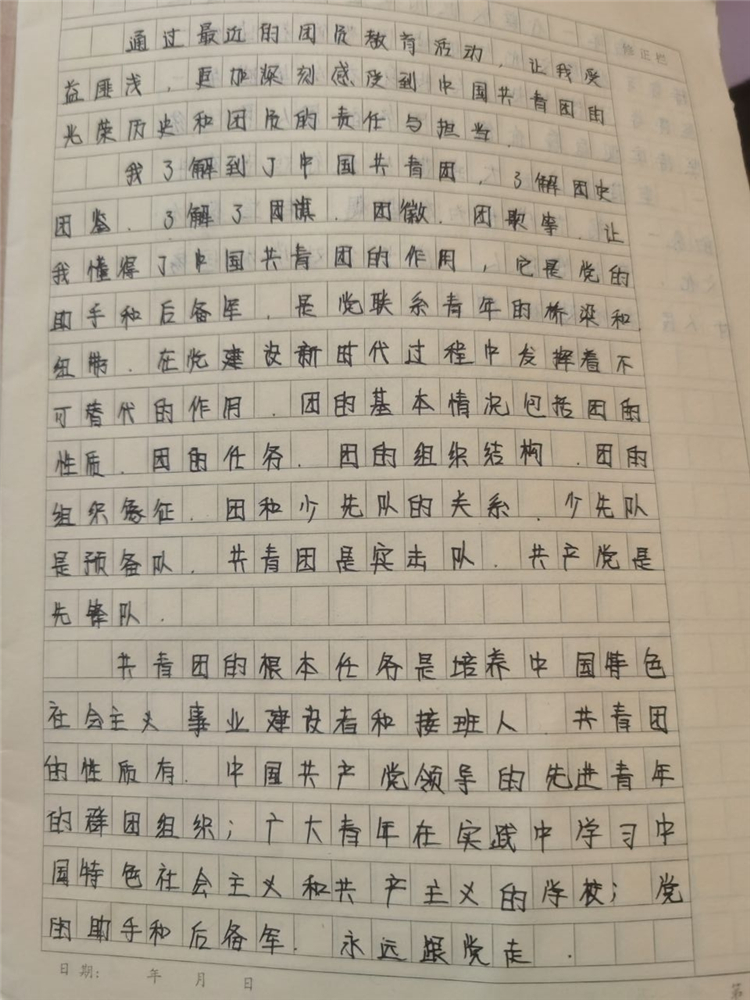 通过最近的团员教育活动,让我受
修正栏
益匪浅.更加深刻感受到中国共青团的
光荣历史和团员的责任与担当.
我了解到了中国共青团.了解团史
团鉴.了解了团旗.团徽.团歌等.让
我懂得了中国共青团的作用,它是党的
助手和后备军.是党联系青年的桥梁和
纽带.在党建设新时代过程中发挥着不
可替代的作用.团的基本情况包括团的
性质.团的任务.团的组织结构.团的
组织象征.团和少先队的关系.少先队
是预备队.共青团是突击队.共产党是
先锋队.
共青团的根本任务是培养中国特色
社会主义事业建设者和接班人 共青团
的性质有.中国共产党领导的先进青年
的群团组织;广大青年在实践中学习中
国特色社会主义和共产主义的学校;党
的助手和后备军.永远跟党走.
日期: 年 月 日
第